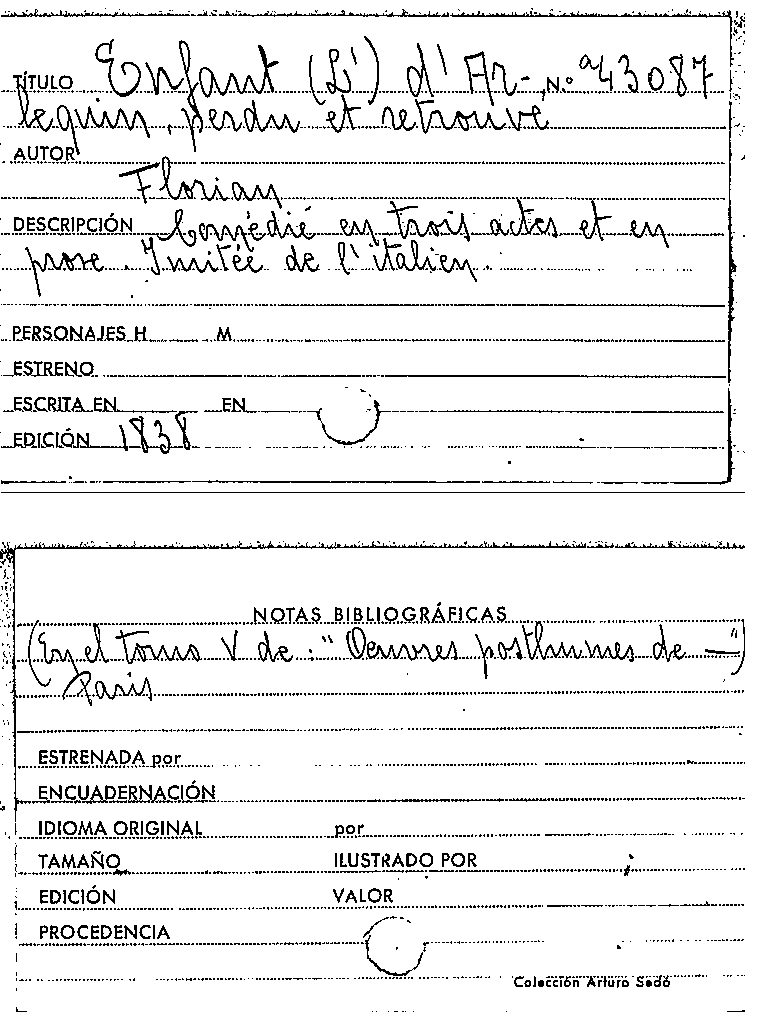 TÍTULO Enfant (L') d'Ar- N.º a43087
lequin, perdu et retrouvé
AUTOR
Florian
DESCRIPCIÓN Comédié en trois actes et en
prose. Imitéé de l'italien.
PERSONAJES H M
ESTRENO
ESCRITA EN EN
EDICIÓN 1838
NOTAS BIBLIOGRÁFICAS
(En el tomo V de: "Oeuvres posthumes de —")
Paris
ESTRENADA por
ENCUADERNACIÓN
IDIOMA ORIGINAL por
TAMAÑO ILUSTRADO POR
EDICIÓN VALOR
PROCEDENCIA
Colección Arturo Sedó